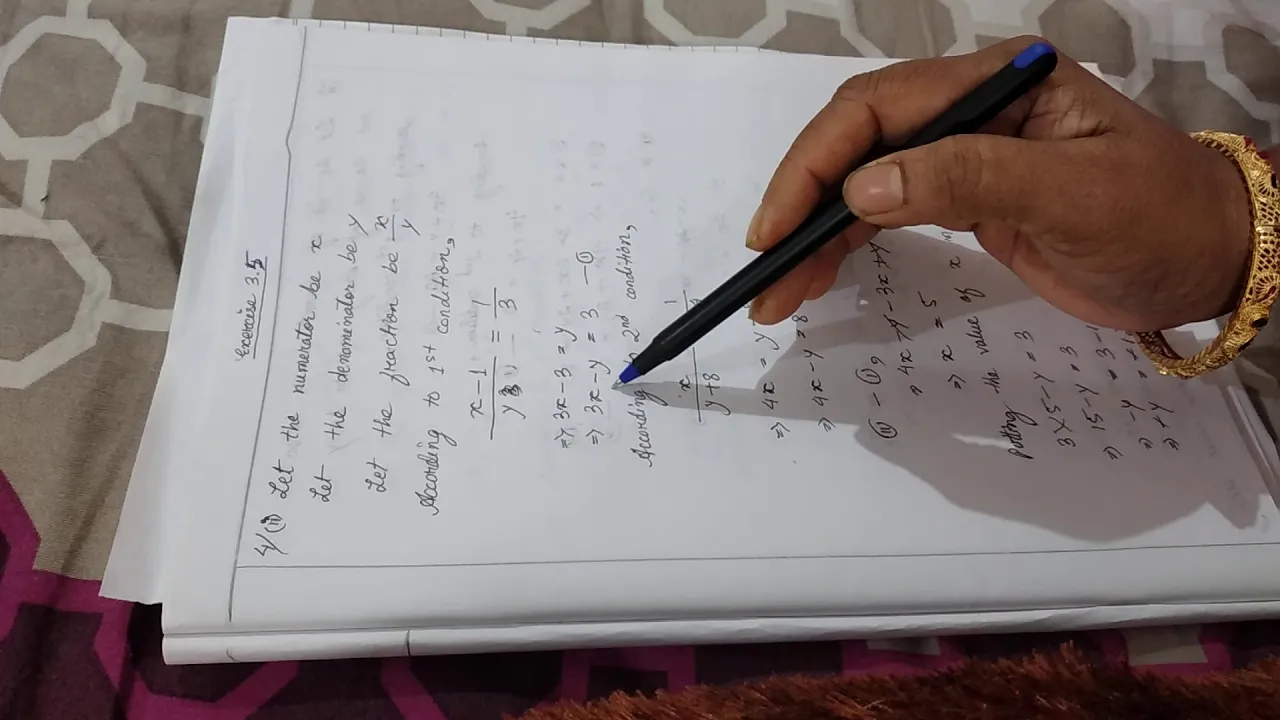 exercise 3.5
4/(ii) Let the numerator be x
Let the denominator be y
Let the fraction be x/y
According to 1st condition,
x-1/y = 1/3
=> 3x-3 = y
=> 3x-y = 3 -(i)
According 2nd condition,
x/y+8
=> 4x = y
=> 4x-y = 8
(ii) - (i),
=> 4x-y-3x+y
=> x = 5
Putting the value of x
3x5-y = 3
=> 15-y = 3
=> -y =
=> +y =